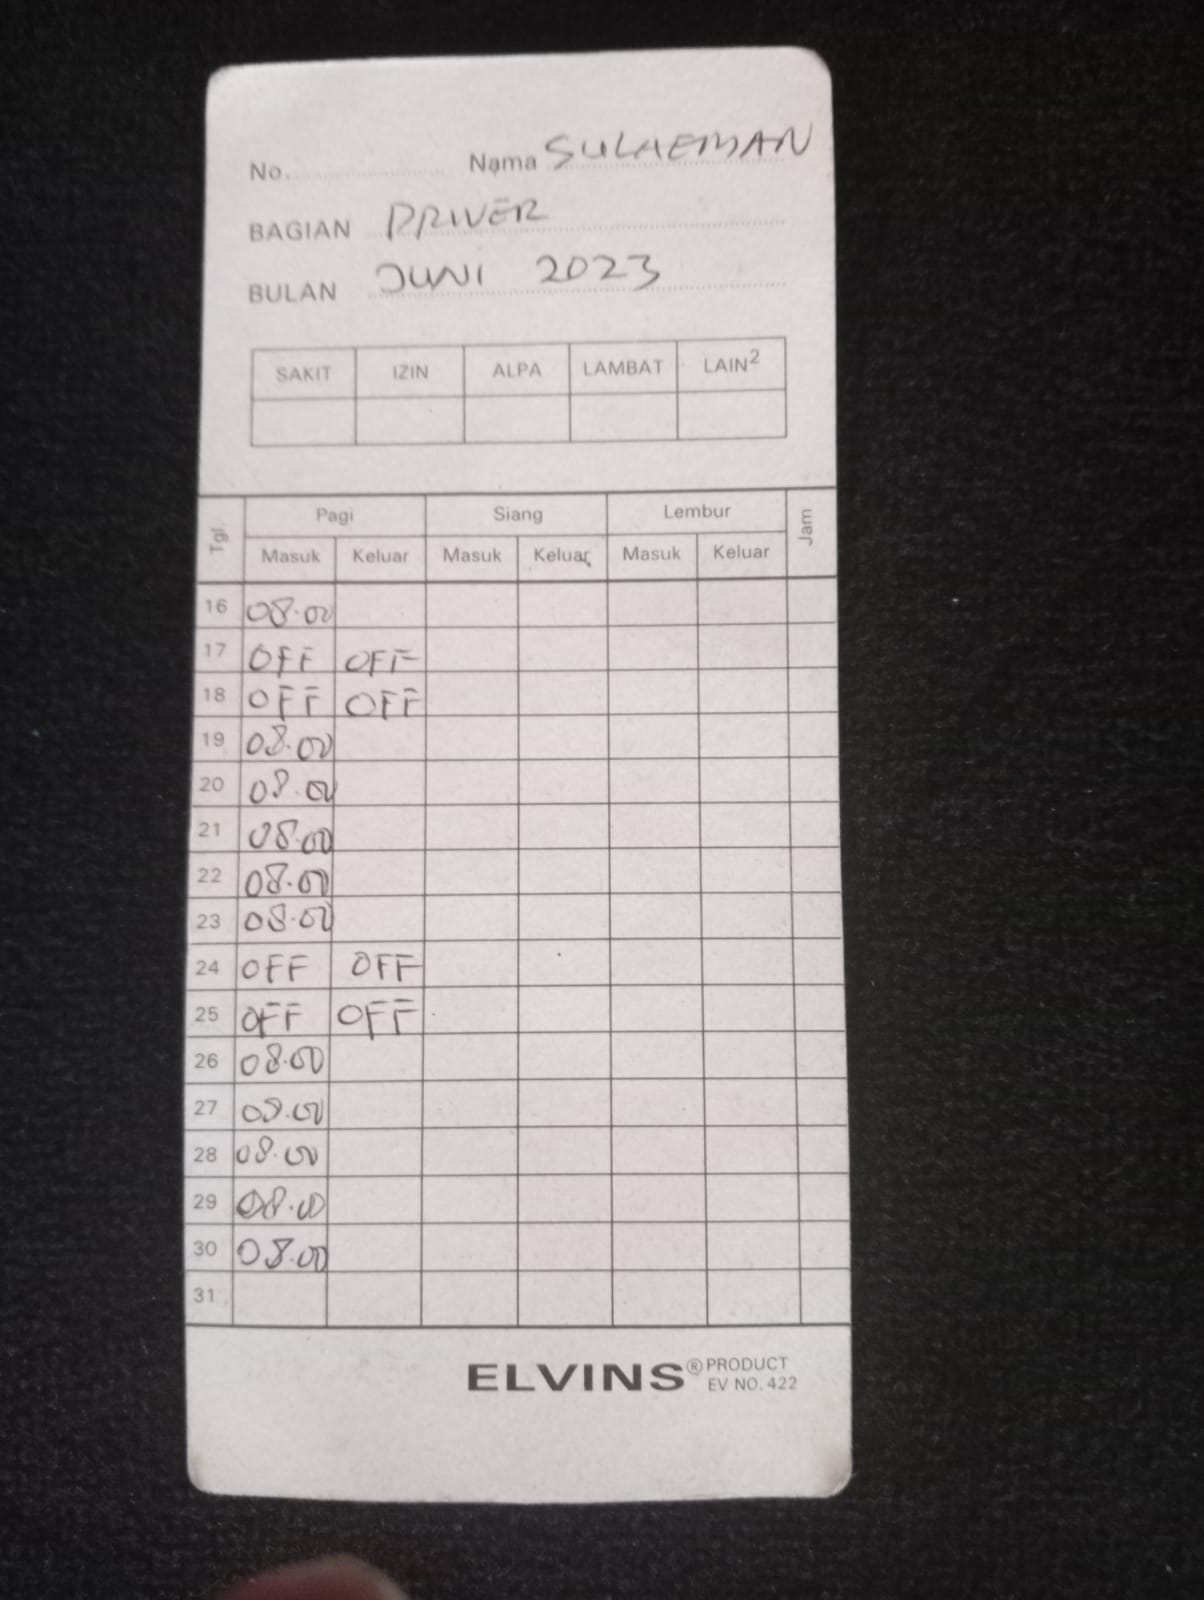 No. Nama SULAEMAN
BAGIAN DRIVER
BULAN JUNI 2023
SAKIT IZIN ALPA LAMBAT LAIN2
Tgl. Pagi Siang Lembur Jam
Masuk Keluar Masuk Keluar Masuk Keluar
16 08.00
17 OFF OFF
18 OFF OFF
19 08.00
20 08.00
21 08.00
22 08.00
23 08.00
24 OFF OFF
25 OFF OFF
26 08.00
27 08.00
28 08.00
29 08.00
30 08.00
31
ELVINS® PRODUCT
EV NO. 422